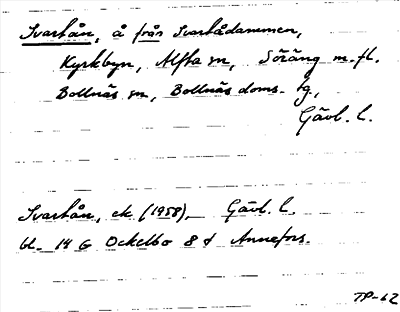 Svartån, å från Svartådammen,
Kyrkbyn, Alfta sn, Söräng m.fl.
Bollnäs sn, Bollnäs doms. tg.,
Gävl. l.
Svartån, ek. (1958), Gävl. l.
bl. 14 G Ockelbo 8 d Annefors.
TP-62